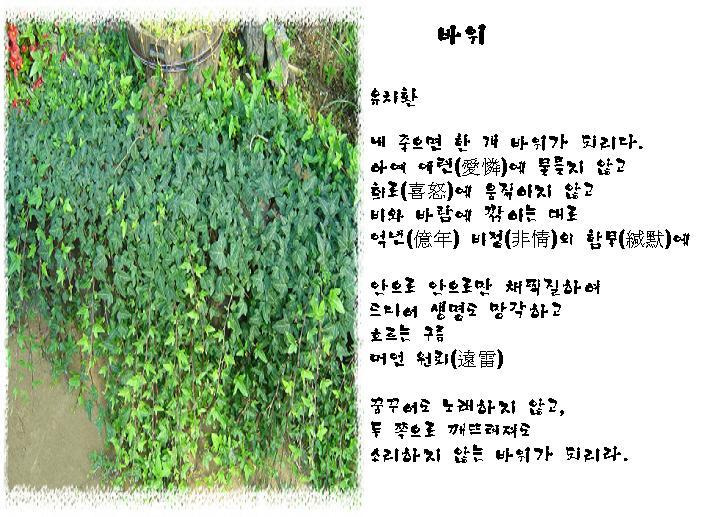 바위
유치환
내 죽으면 한 개 바위가 되리다.
아예 애련(愛憐)에 물들지 않고
희로(喜怒)에 움직이지 않고
비와 바람에 깎이는 대로
억년(億年) 비정(非情)의 함묵(緘默)에
안으로 안으로만 채찍질하여
드디어 생명도 망각하고
흐르는 구름
머언 원뢰(遠雷)
꿈꾸어도 노래하지 않고,
두 쪽으로 깨뜨려져도
소리하지 않는 바위가 되리라.